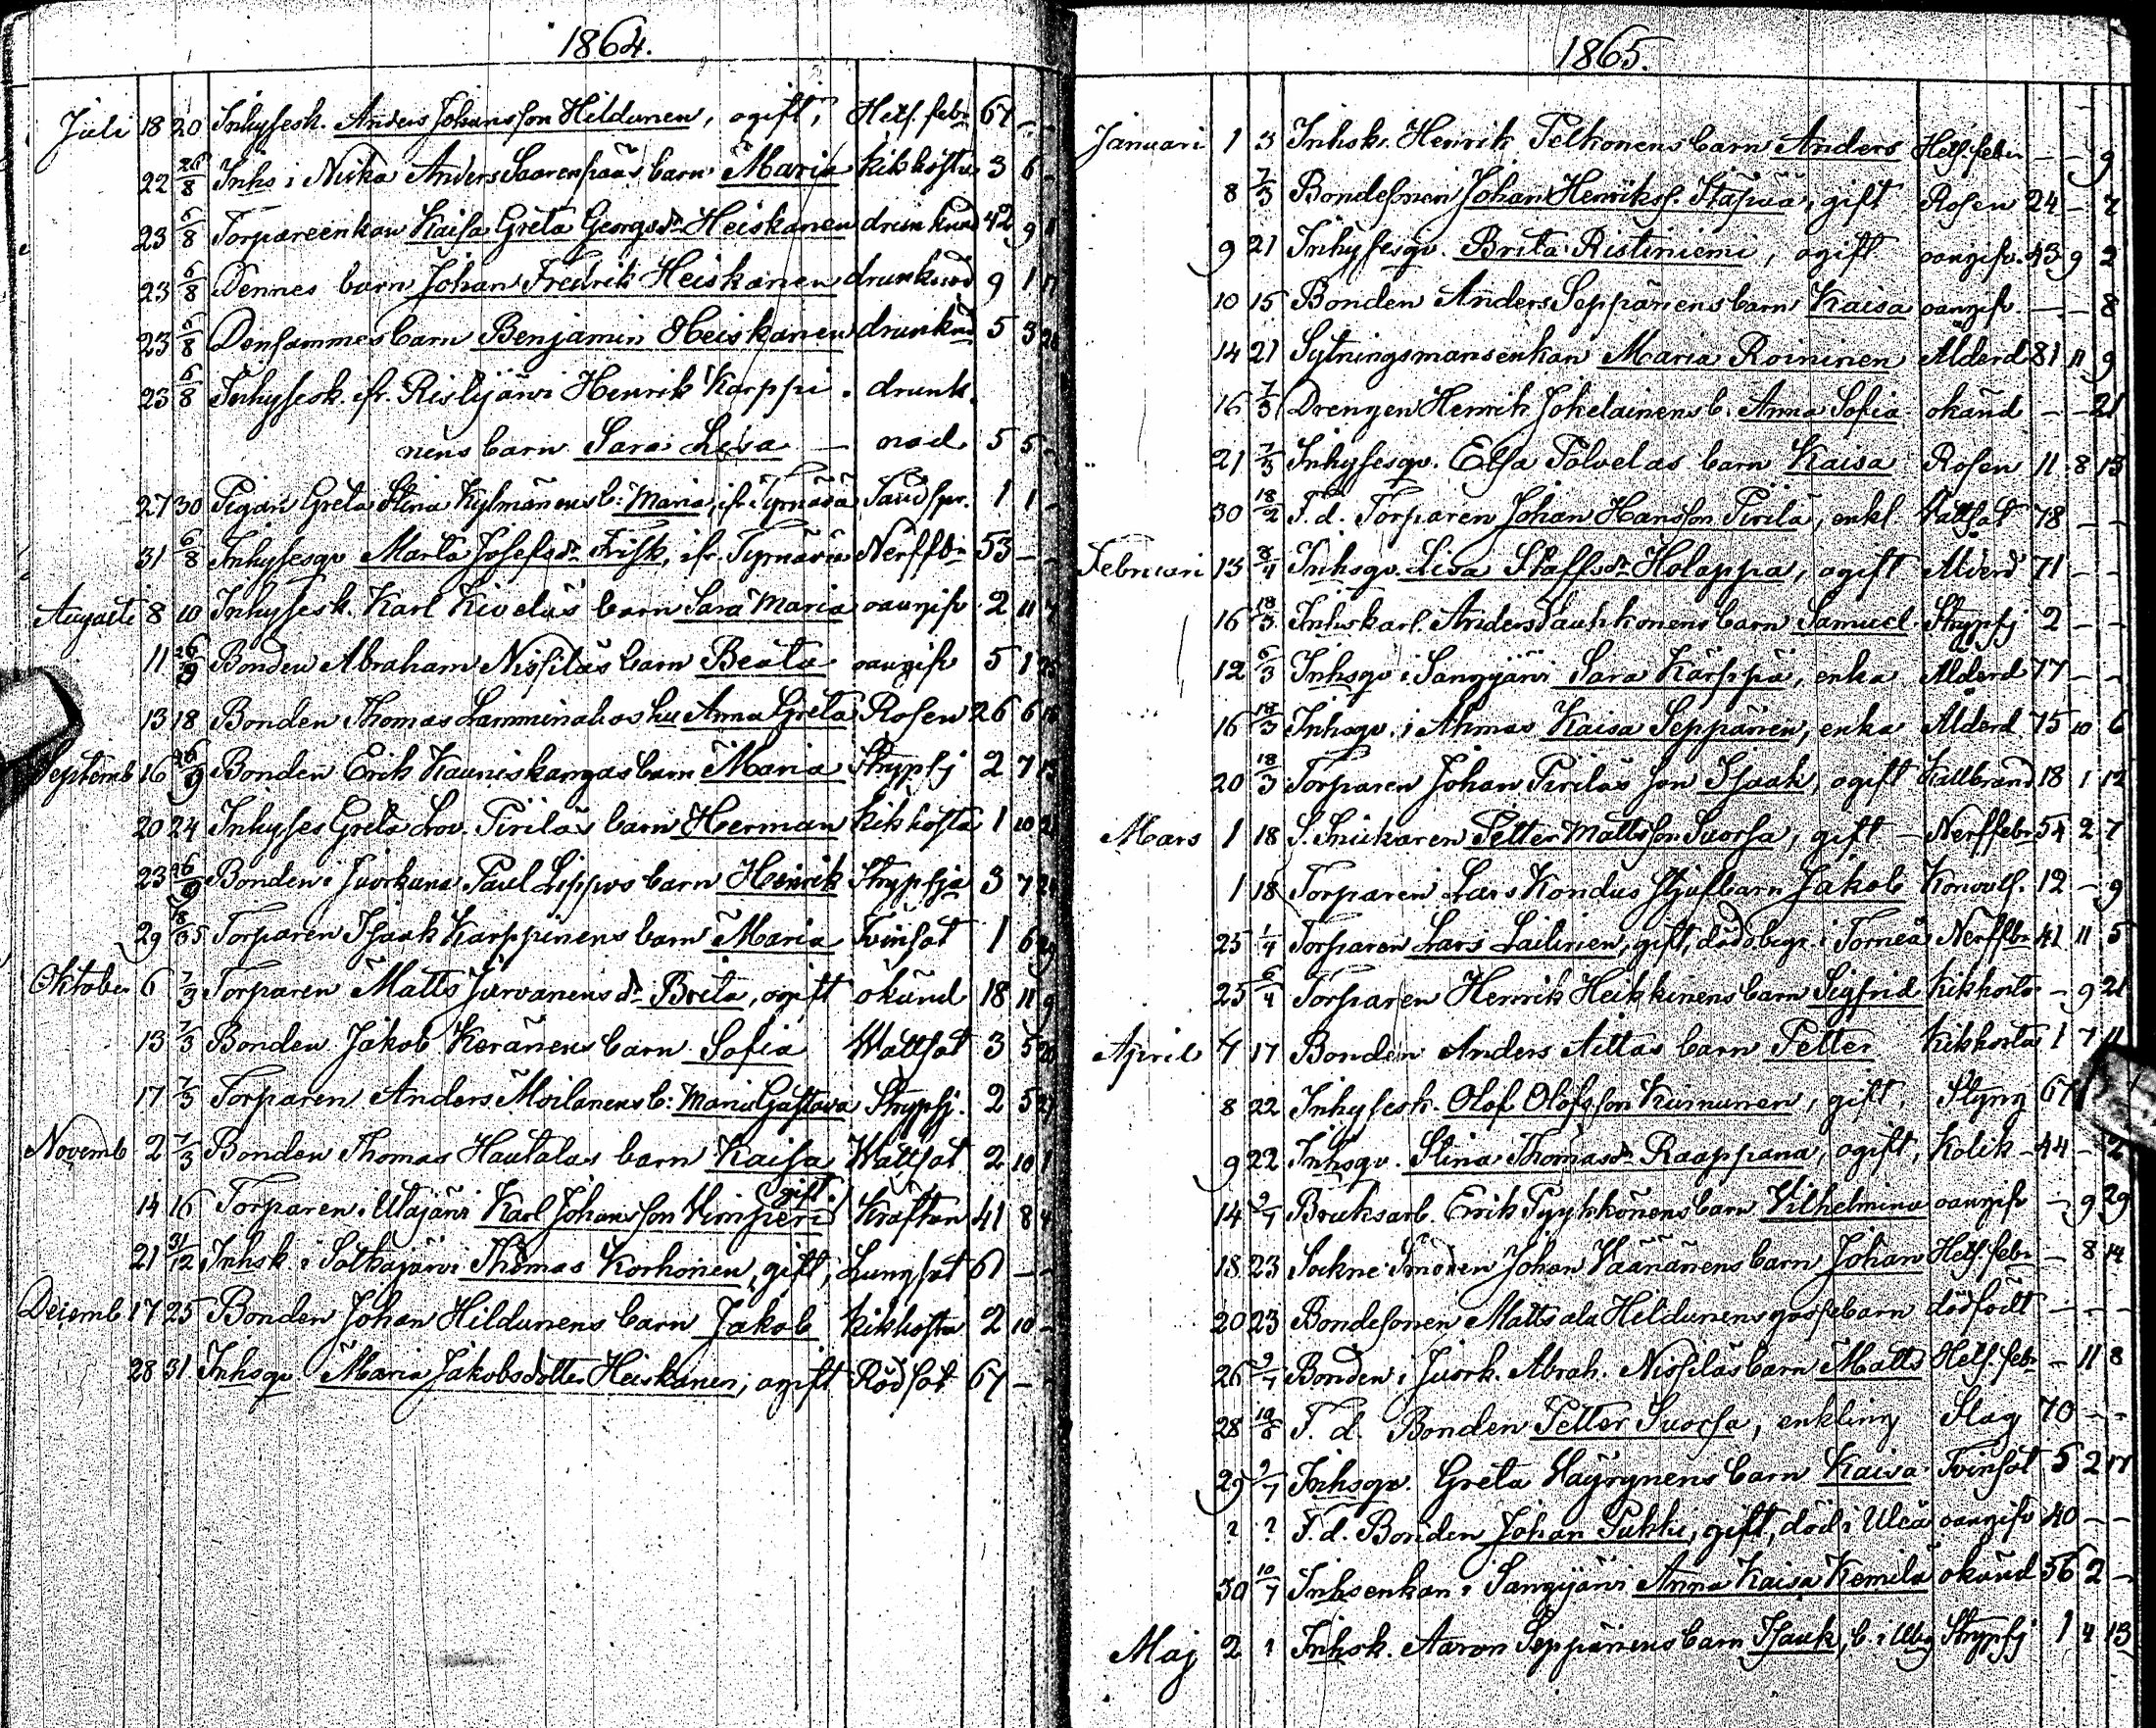 1864.
Juli 18 20 Inhysesk. Anders Johansson Hildunen, ogift, Hets. febr 67 - -
22 26/8 Inhs i Niska Anders Saarenpääs barn Maria Kikhosta 3 6 -
23 6/8 Torpareenkan Kaisa Greta Georgsdr Heiskanen drunknad 42 9 1
23 6/8 Dennes barn Johan Fredrik Heiskanen drunknad 9 1 17
23 6/8 Densammes barn Benjamin Heiskanen drunknd 5 3
23 6/8 Inhysesk. ifr. Ristijärvi Henrik Karppi- drunk-
nens barn Sara Lisa - nad 5 5 -
27 30 Pigan Greta Stina Kylmänens b: Maria, ifr. Tyrnävä 1 1 -
31 6/8 Inhysesqv Marta Josefsdr Frisk, ifr. Tyrnävä Nerffbr 53 - -
Augusti 8 10 Inhysesk. Karl Kiveläs barn Sara Maria oangifv 2 11 7
11 26/9 Bonden Abraham Nissiläs barn Beata oangifv 5 1 25
13 18 Bonden Thomas Lamminahos hu Anna Greta Rosen 26 6 18
Septemb 16 26/9 Bonden Erik Kauniskangas barn Maria Strypsj 2 7 13
20 24 Inhyses Greta Lov. Piriläs barn Herman Kikhosta 1 10 21
23 26/9 Bonden i Juorkuna Paul Lippos barn Henrik Strypsja 3 7 24
29 Torparen Isaak Karppinens barn Maria Tvinsot 1 6 29
Oktober 6 7/3 Torparen Matts Jurvanens dr Brita, ogift okänd 18 11 9
13 7/3 Bonden Jakob Keränens barn Sofia Wattsot 3 5 20
17 7/3 Torparen Anders Moilanens b: Maria Gustava Strypsj. 2 5 27
Novemb 2 7/3 Bonden Thomas Hautalas barn Kaisa Wattsot 2 10 1
14 16 Torparen i Utajärvi Karl Johansson Vimperi gift Kräftan 41 8 4
21 31/12 Inhsk i Sotkajärvi Thomas Korhonen, gift, Lungsot 61 - -
Decemb 17 25 Bonden Johan Hildunens barn Jakob Kikhosta 2 10 -
28 31 Inhsqv Maria Jakobsdotter Heiskanen, ogift Rödsot 67 - -
1865.
Januari 1 3 Inhsk. Henrik Pelkonens barn Anders Hets. febr - - 9
8 7/3 Bondesonen Johan Henrikss. Itäpää, gift Rosen 24 - 7
9 21 Inhysesqv. Brita Ristiniemi, ogift oangifv. 43 9 2
10 15 Bonden Anders Seppänens barn Kaisa oangifv. - - 8
14 21 Sytningsmansenkan Maria Roininen Ålderd 81 11 9
16 7/3 Drengen Henrik Jokelainens b. Anna Sofia okänd - - 21
21 7/3 Inhysesqv. Elsa Polvelas barn Kaisa Rosen 11 8 13
30 18/2 F. d. Torparen Johan Hansson Pirilä, enkl. Vattsot 78 - -
Februari 13 8/4 Inhsqv. Lisa Staffsdr Holappa, ogift Ålderd 71 - -
16 18/3 Inhskarl. Anders Pauhkonens barn Samuel Strypsj 2 - -
12 5/3 Inhsqv i Sangijärvi Sara Kärppä, enka Ålderd 77 - -
16 18/3 Inhsqv. i Ahmas Kaisa Seppänen, enka Ålderd 75 10 6
20 18/3 Torparen Johan Piriläs son Isaak, ogift Kallbrand 18 1 12
Mars 1 18 S. Snickaren Petter Mattsson Suorsa, gift - Nerffebr 54 2 7
1 18 Torparen Lars Kondus stjufbarn Jakob Konvuls. 12 - 9
25 1/4 Torparen Lars Lailinen, gift, död o begr. i Torneå Nerffbr 41 11 5
25 6/4 Torparen Henrik Heikkinens barn Sigfrid Kikhosta - 9 21
April 4 17 Bonden Anders Aittas barn Petter Kikhosta 1 7 11
8 22 Inhysesk. Olof Olofsson Kurnunen, gift, Styng 67
9 22 Inhsqv. Stina Thomasdr Raappana, ogift, Kolik 44 - 2
14 2/7 Bruksarb. Erik Pyykkönens barn Vilhelmina oangifv - 9 29
18 23 Sockne Smeden Johan Väänänens barn Johan Hets. febr - 8 14
20 23 Bondesonen Matts ala Hildunens gossebarn dödfödt - - -
26 2/7 Bonden i Juork. Abrah. Nissiläs barn Matts Hets. febr - 11 8
28 10/8 F. d. Bonden Petter Suorsa, enkling Slag 70 - -
29 2/7 Inhsqv. Greta Häyrynens barn Kaisa Tvinsot 5 2 17
? ? F. d. Bonden Johan Pukki, gift, död i Uleå oangifv 40 - -
30 10/7 Inhsenkan i Sangijärvi Anna Kaisa Kemilä okänd 56 2 -
Maj 2 1 Inhsk. Aaron Seppänens barn Isaak, b. i Ulbg Strypsj 1 4 13